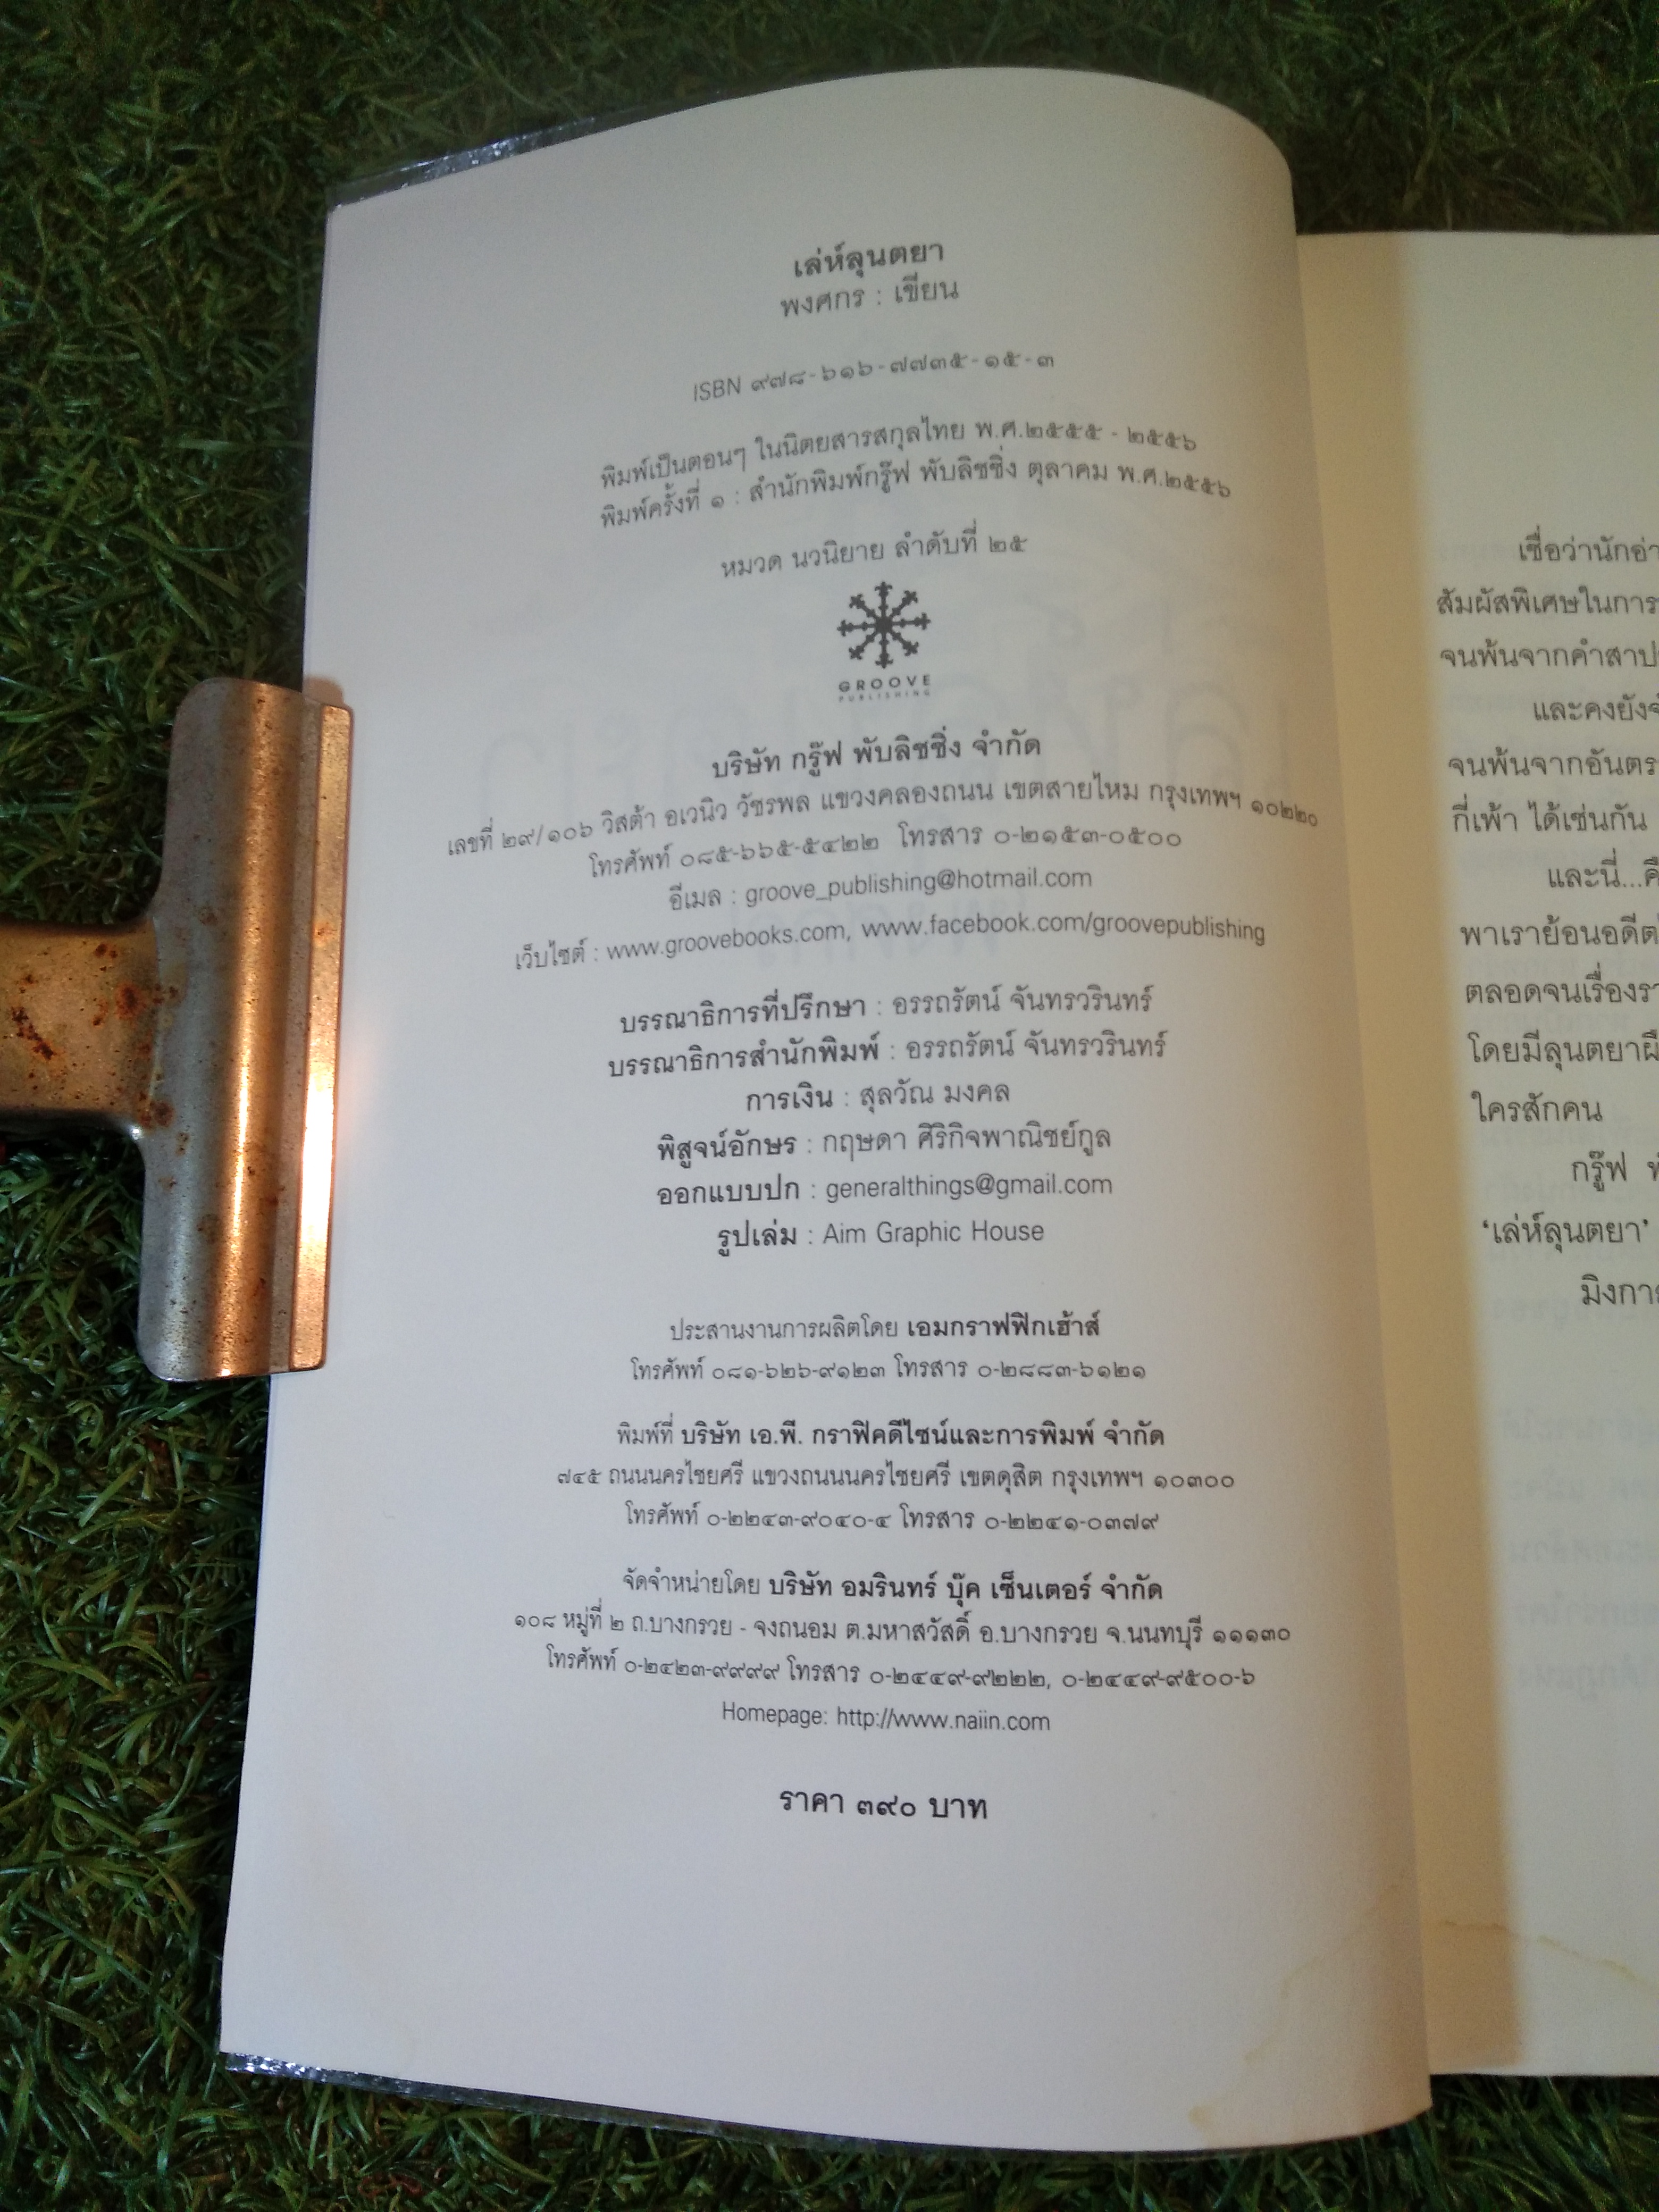 เล่ห์ลุนตยา
พงศกร : เขียน
ISBN ๙๗๘-๖๑๖-๗๗๓๕-๑๕-๓
พิมพ์เป็นตอนๆ ในนิตยสารสกุลไทย พ.ศ.๒๕๕๕ - ๒๕๕๖
พิมพ์ครั้งที่ ๑ : สำนักพิมพ์กรู๊ฟ พับลิชชิ่ง ตุลาคม พ.ศ.๒๕๕๖
หมวด นวนิยาย ลำดับที่ ๒๕
GROOVE
PUBLISHING
บริษัท กรู๊ฟ พับลิชชิ่ง จำกัด
เลขที่ ๒๙/๑๐๖ วิสต้า อเวนิว วัชรพล แขวงคลองถนน เขตสายไหม กรุงเทพฯ ๑๐๒๒๐
โทรศัพท์ ๐๘๕-๖๖๕-๕๔๒๒ โทรสาร ๐-๒๑๕๓-๐๕๐๐
อีเมล : groove_publishing@hotmail.com
เว็บไซต์ : www.groovebooks.com, www.facebook.com/groovepublishing
บรรณาธิการที่ปรึกษา : อรรถรัตน์ จันทรวรินทร์
บรรณาธิการสำนักพิมพ์ : อรรถรัตน์ จันทรวรินทร์
การเงิน : สุลวัณ มงคล
พิสูจน์อักษร : กฤษดา ศิริกิจพาณิชย์กูล
ออกแบบปก : generalthings@gmail.com
รูปเล่ม : Aim Graphic House
ประสานงานการผลิตโดย เอมกราฟฟิกเฮ้าส์
โทรศัพท์ ๐๘๑-๖๒๖-๙๑๒๓ โทรสาร ๐-๒๘๘๓-๖๑๒๑
พิมพ์ที่ บริษัท เอ.พี. กราฟิคดีไซน์และการพิมพ์ จำกัด
๗๔๕ ถนนนครไชยศรี แขวงถนนนครไชยศรี เขตดุสิต กรุงเทพฯ ๑๐๓๐๐
โทรศัพท์ ๐-๒๒๔๓-๙๐๔๐-๔ โทรสาร ๐-๒๒๔๑-๐๓๗๙
จัดจำหน่ายโดย บริษัท อมรินทร์ บุ๊ค เซ็นเตอร์ จำกัด
๑๐๘ หมู่ที่ ๒ ถ.บางกรวย - จงถนอม ต.มหาสวัสดิ์ อ.บางกรวย จ.นนทบุรี ๑๑๑๓๐
โทรศัพท์ ๐-๒๔๒๓-๙๙๙๙ โทรสาร ๐-๒๔๔๙-๙๒๒๒, ๐-๒๔๔๙-๙๕๐๐-๖
Homepage: http://www.naiin.com
ราคา ๓๙๐ บาท
เชื่อว่านักอ่า
สัมผัสพิเศษในการ
จนพ้นจากคำสาป
และคงยังจ
จนพ้นจากอันตร
กี่เพ้า ได้เช่นกัน
และนี่...คื
พาเราย้อนอดีต
ตลอดจนเรื่องรา
โดยมีลุนตยาผื
ใครสักคน
กรู๊ฟ
'เล่ห์ลุนตยา'
มิงกา